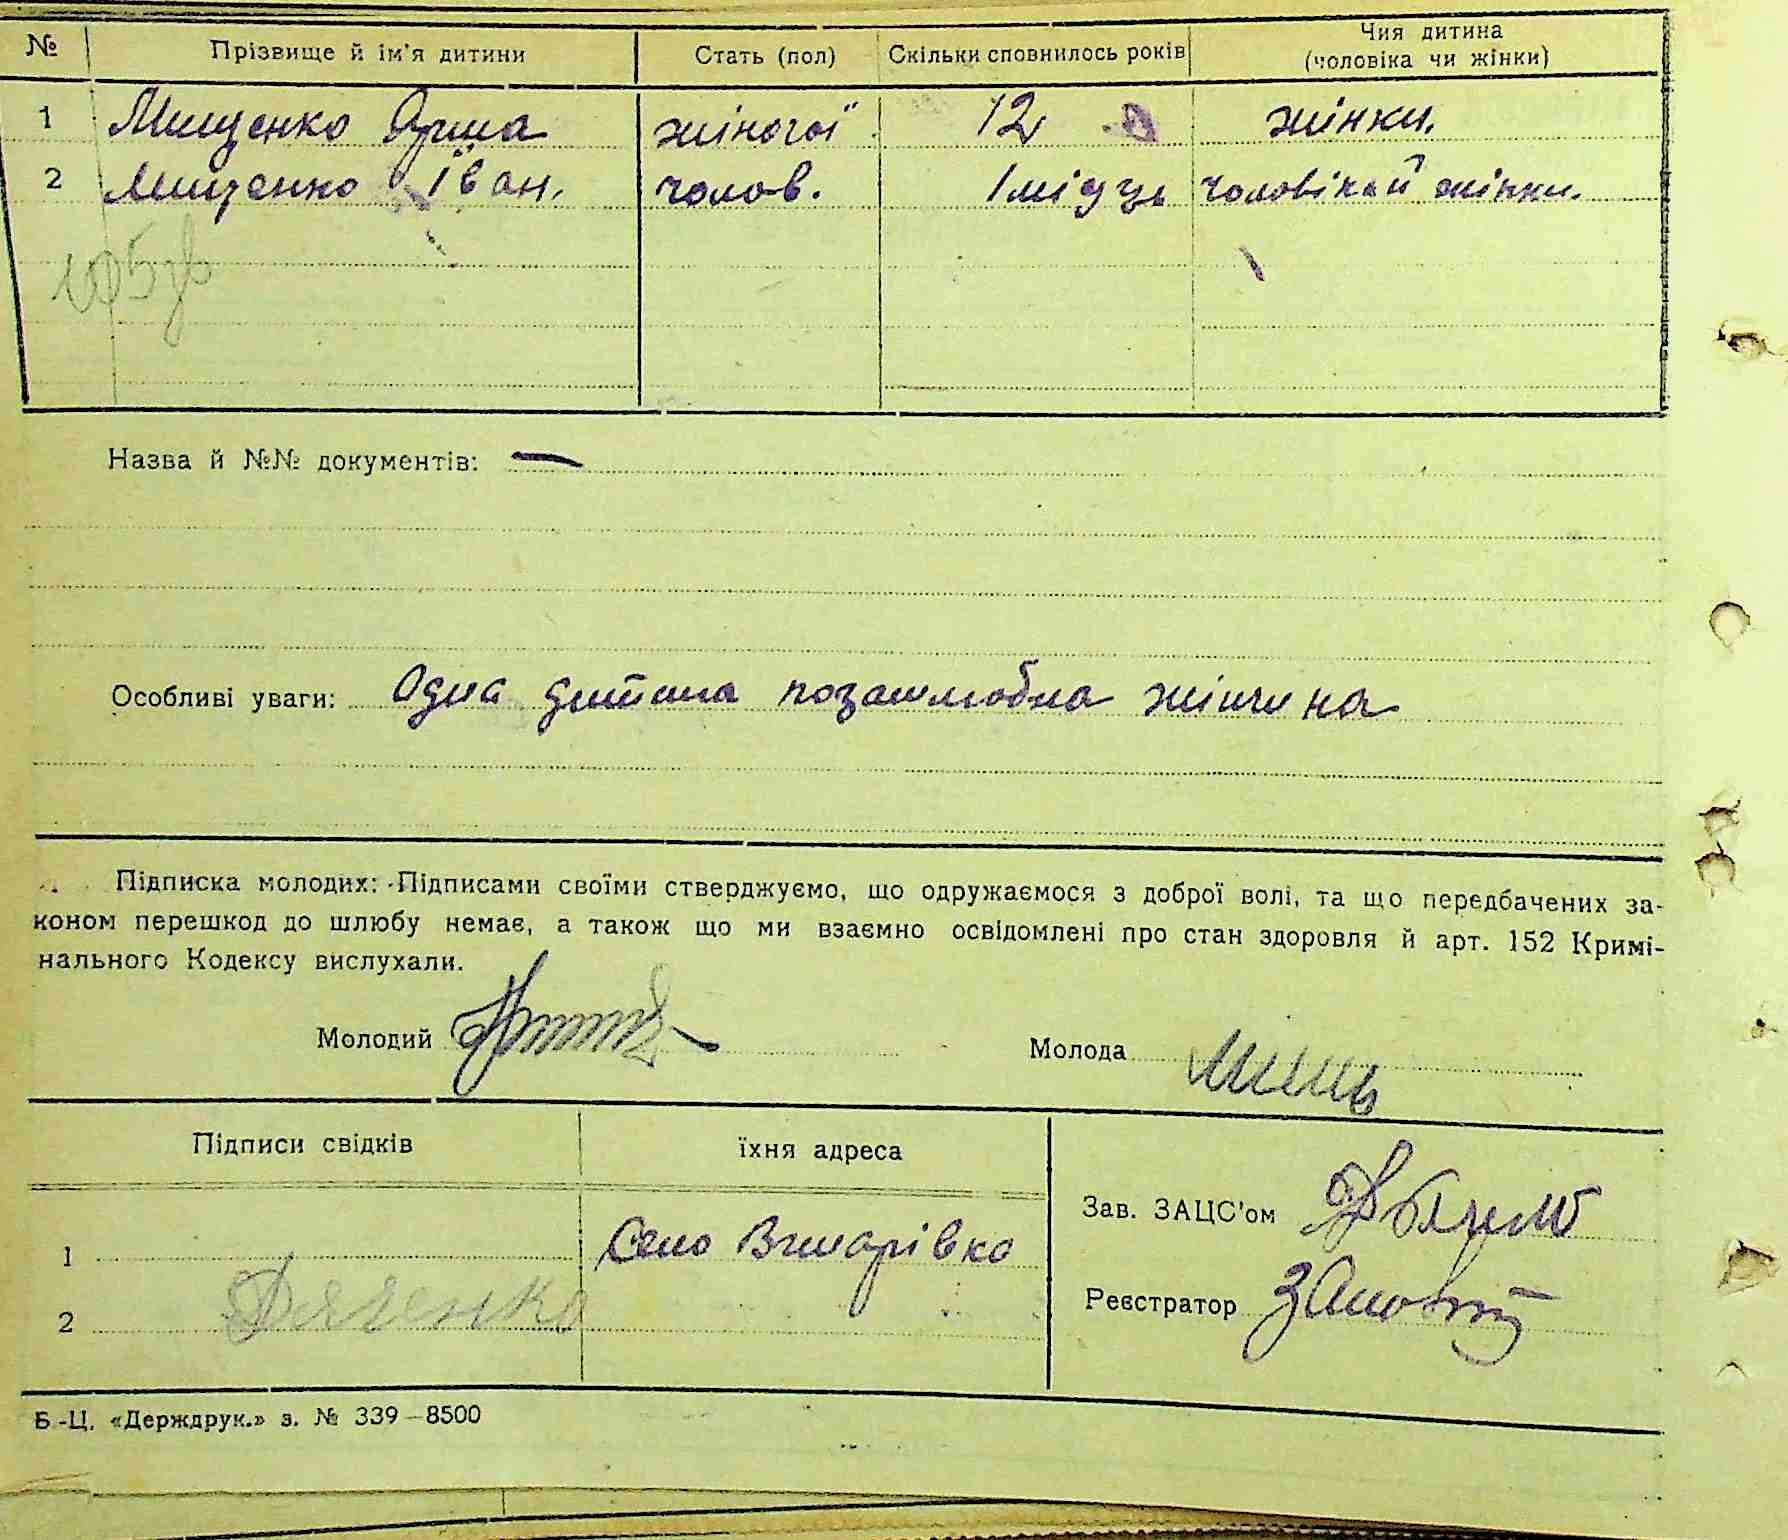 № Прізвище й ім'я дитини Стать (пол) Скільки сповнилось років Чия дитина (чоловіка чи жінки)
1 Мищенко жіночої 12 жінки.
2 Мищенко Іван. чолов. 1 місяць чоловіка й жінки.
Назва й №№ документів: —
Особливі уваги: Одна дитина позашлюбна жінчина
Підписка молодих: Підписами своїми стверджуємо, що одружаємося з доброї волі, та що передбачених за-
коном перешкод до шлюбу немає, а також що ми взаємно освідомлені про стан здоровля й арт. 152 Кримі-
нального Кодексу вислухали.
Молодий Молода
Підписи свідків їхня адреса
Зав. ЗАЦС'ом
1 Село
Реєстратор
2 Дяченко
Б-Ц. «Держдрук.» з. № 339—8500